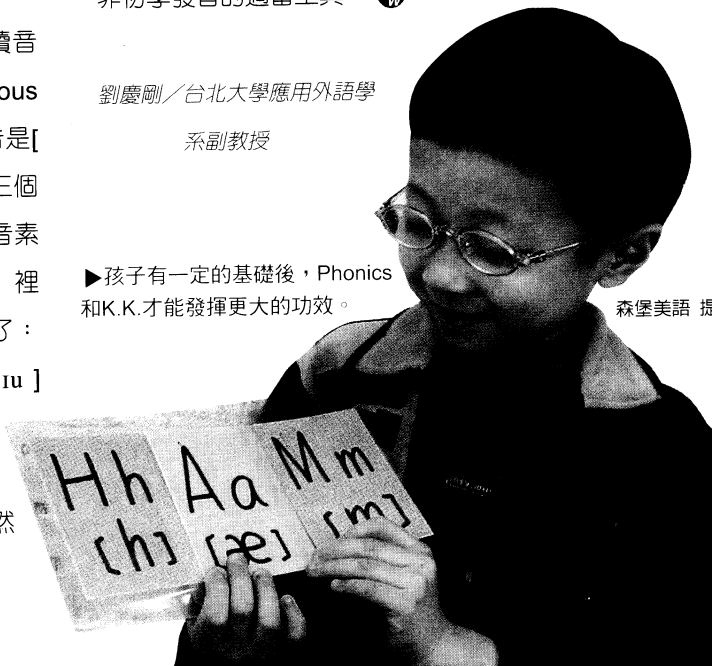 讀音
ous
音是[
三個
音素
裡
了：
ɪu ]
然
非初學發音的適當工具
W
劉慶剛／台北大學應用外語學
系副教授
▶孩子有一定的基礎後，Phonics
和K.K.才能發揮更大的功效。
森堡美語 提
Hh Aa Mm
[h] [æ] [m]